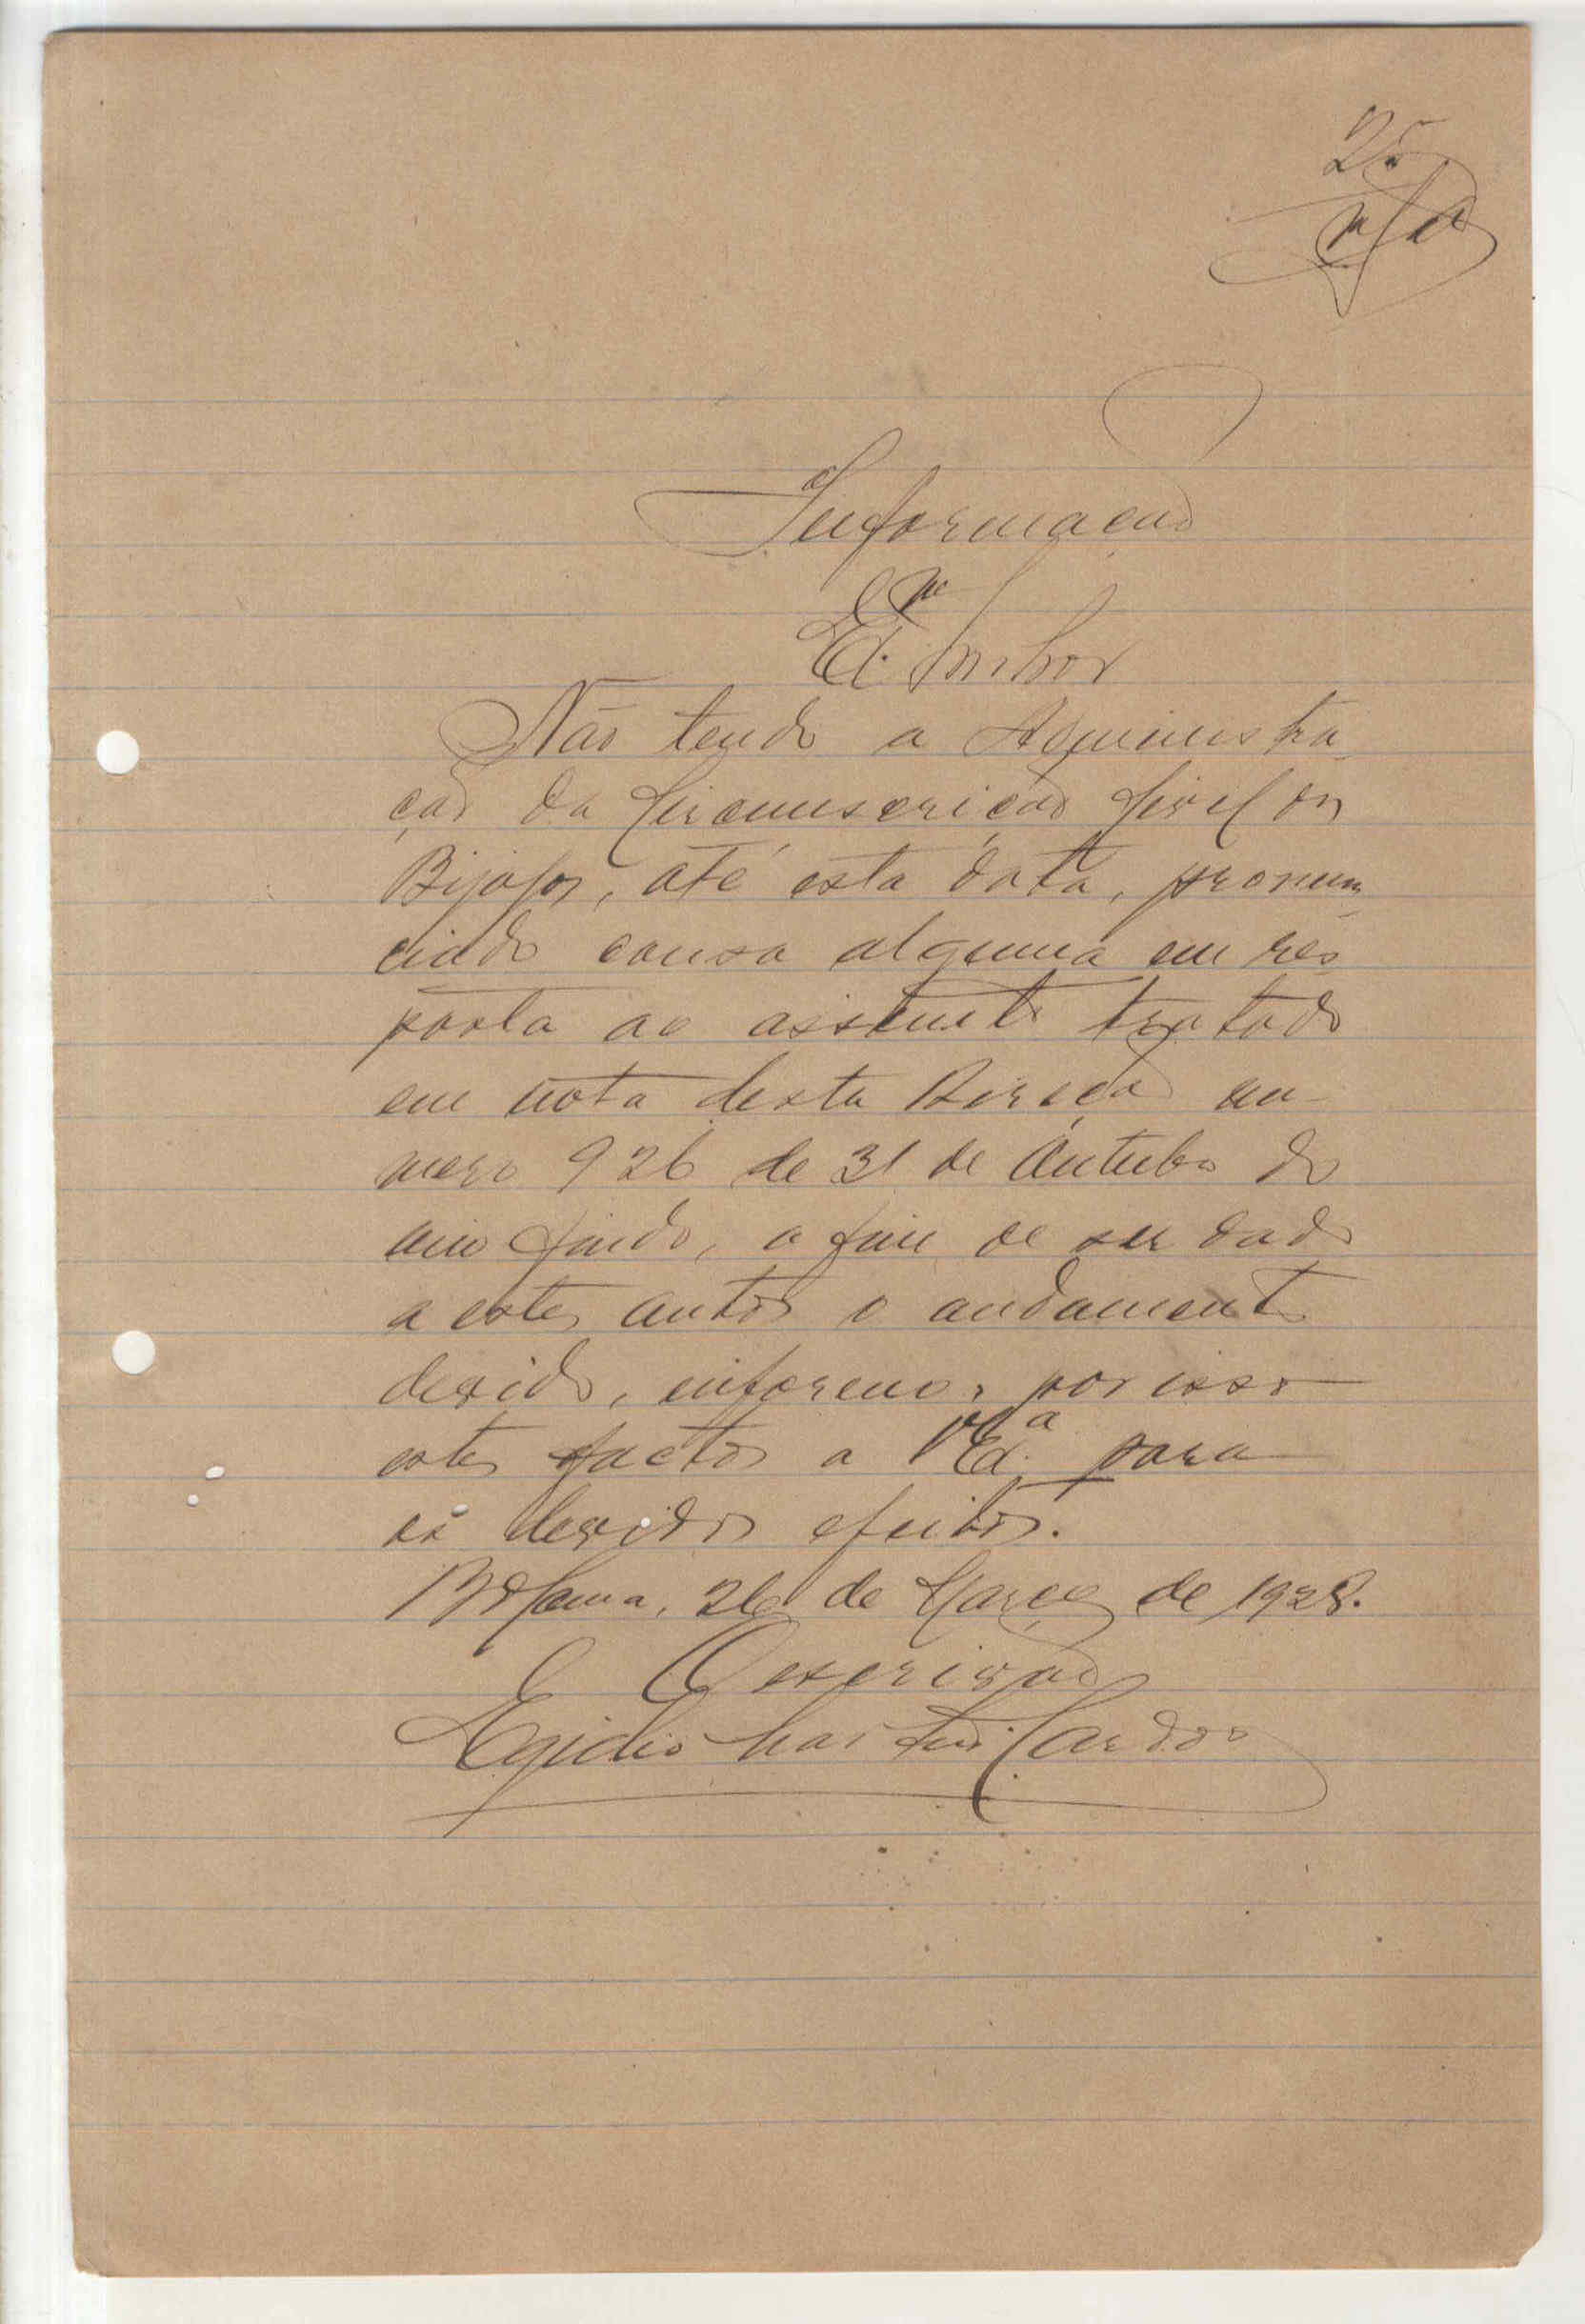 25
Informação
Exmo Senhor
Não tendo a Administra
ção da Circunscrição Civil dos
Bijagós, até esta data, pronun
ciado causa alguma em res
posta ao assunto tratado
em nota desta Direção nu-
mero 926 de 31 de Outubro do
ano findo, a fim de ser dado
a estes autos o andamento
devido, informo, por isso
estes factos a V. Exa. para
os devidos efeitos.
Bolama, 26 de Março de 1928.
O escrivão
Egidio Cardoso